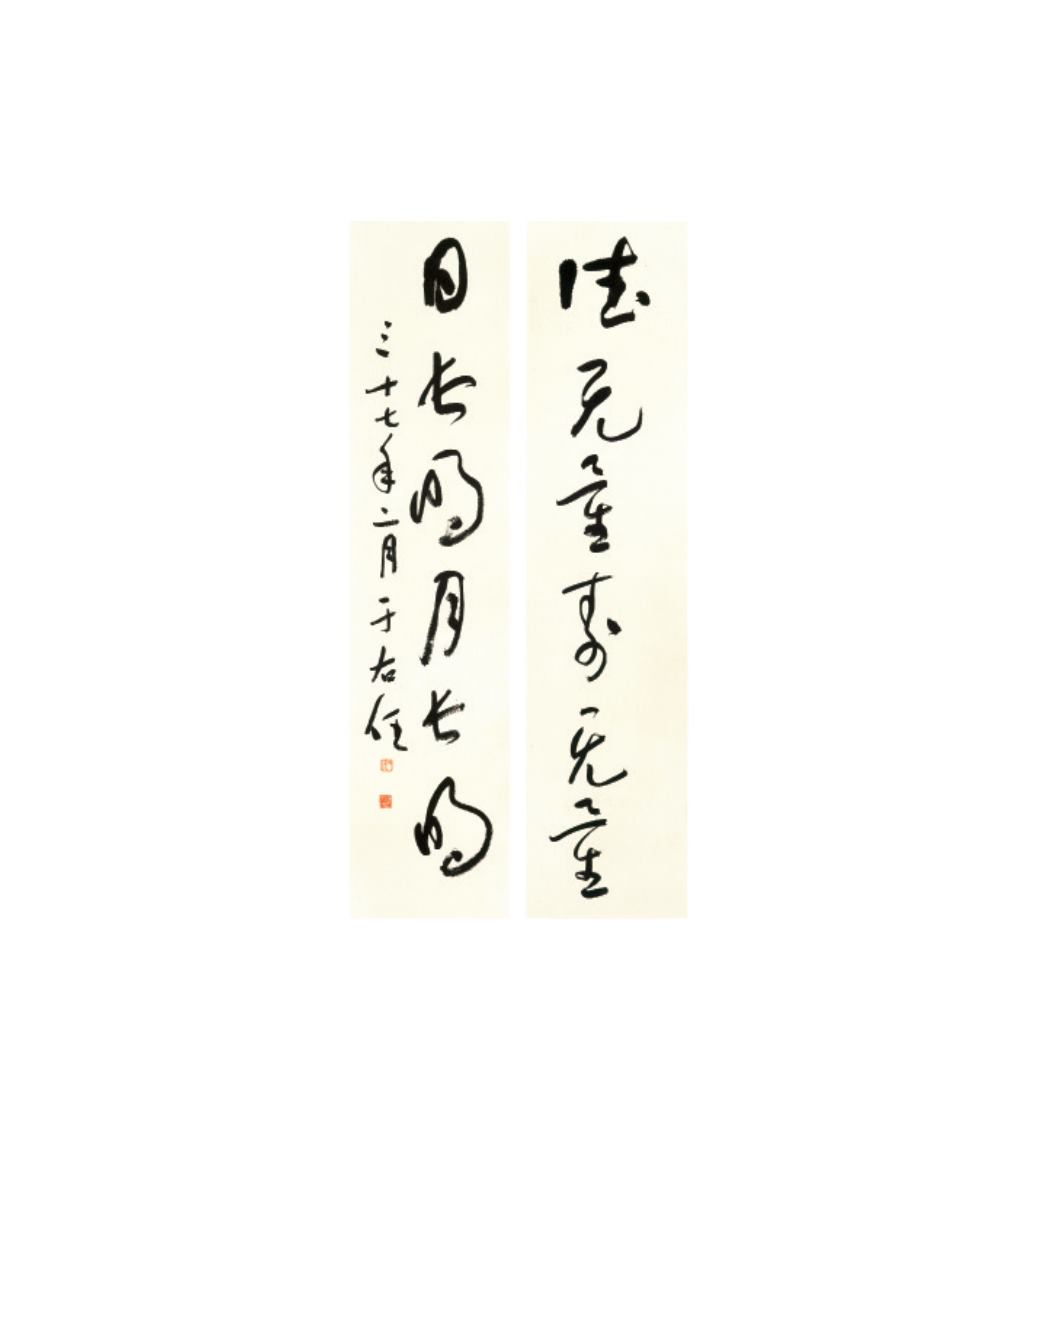 德无量壽无量
日長明月長明
三十七年二月于右任